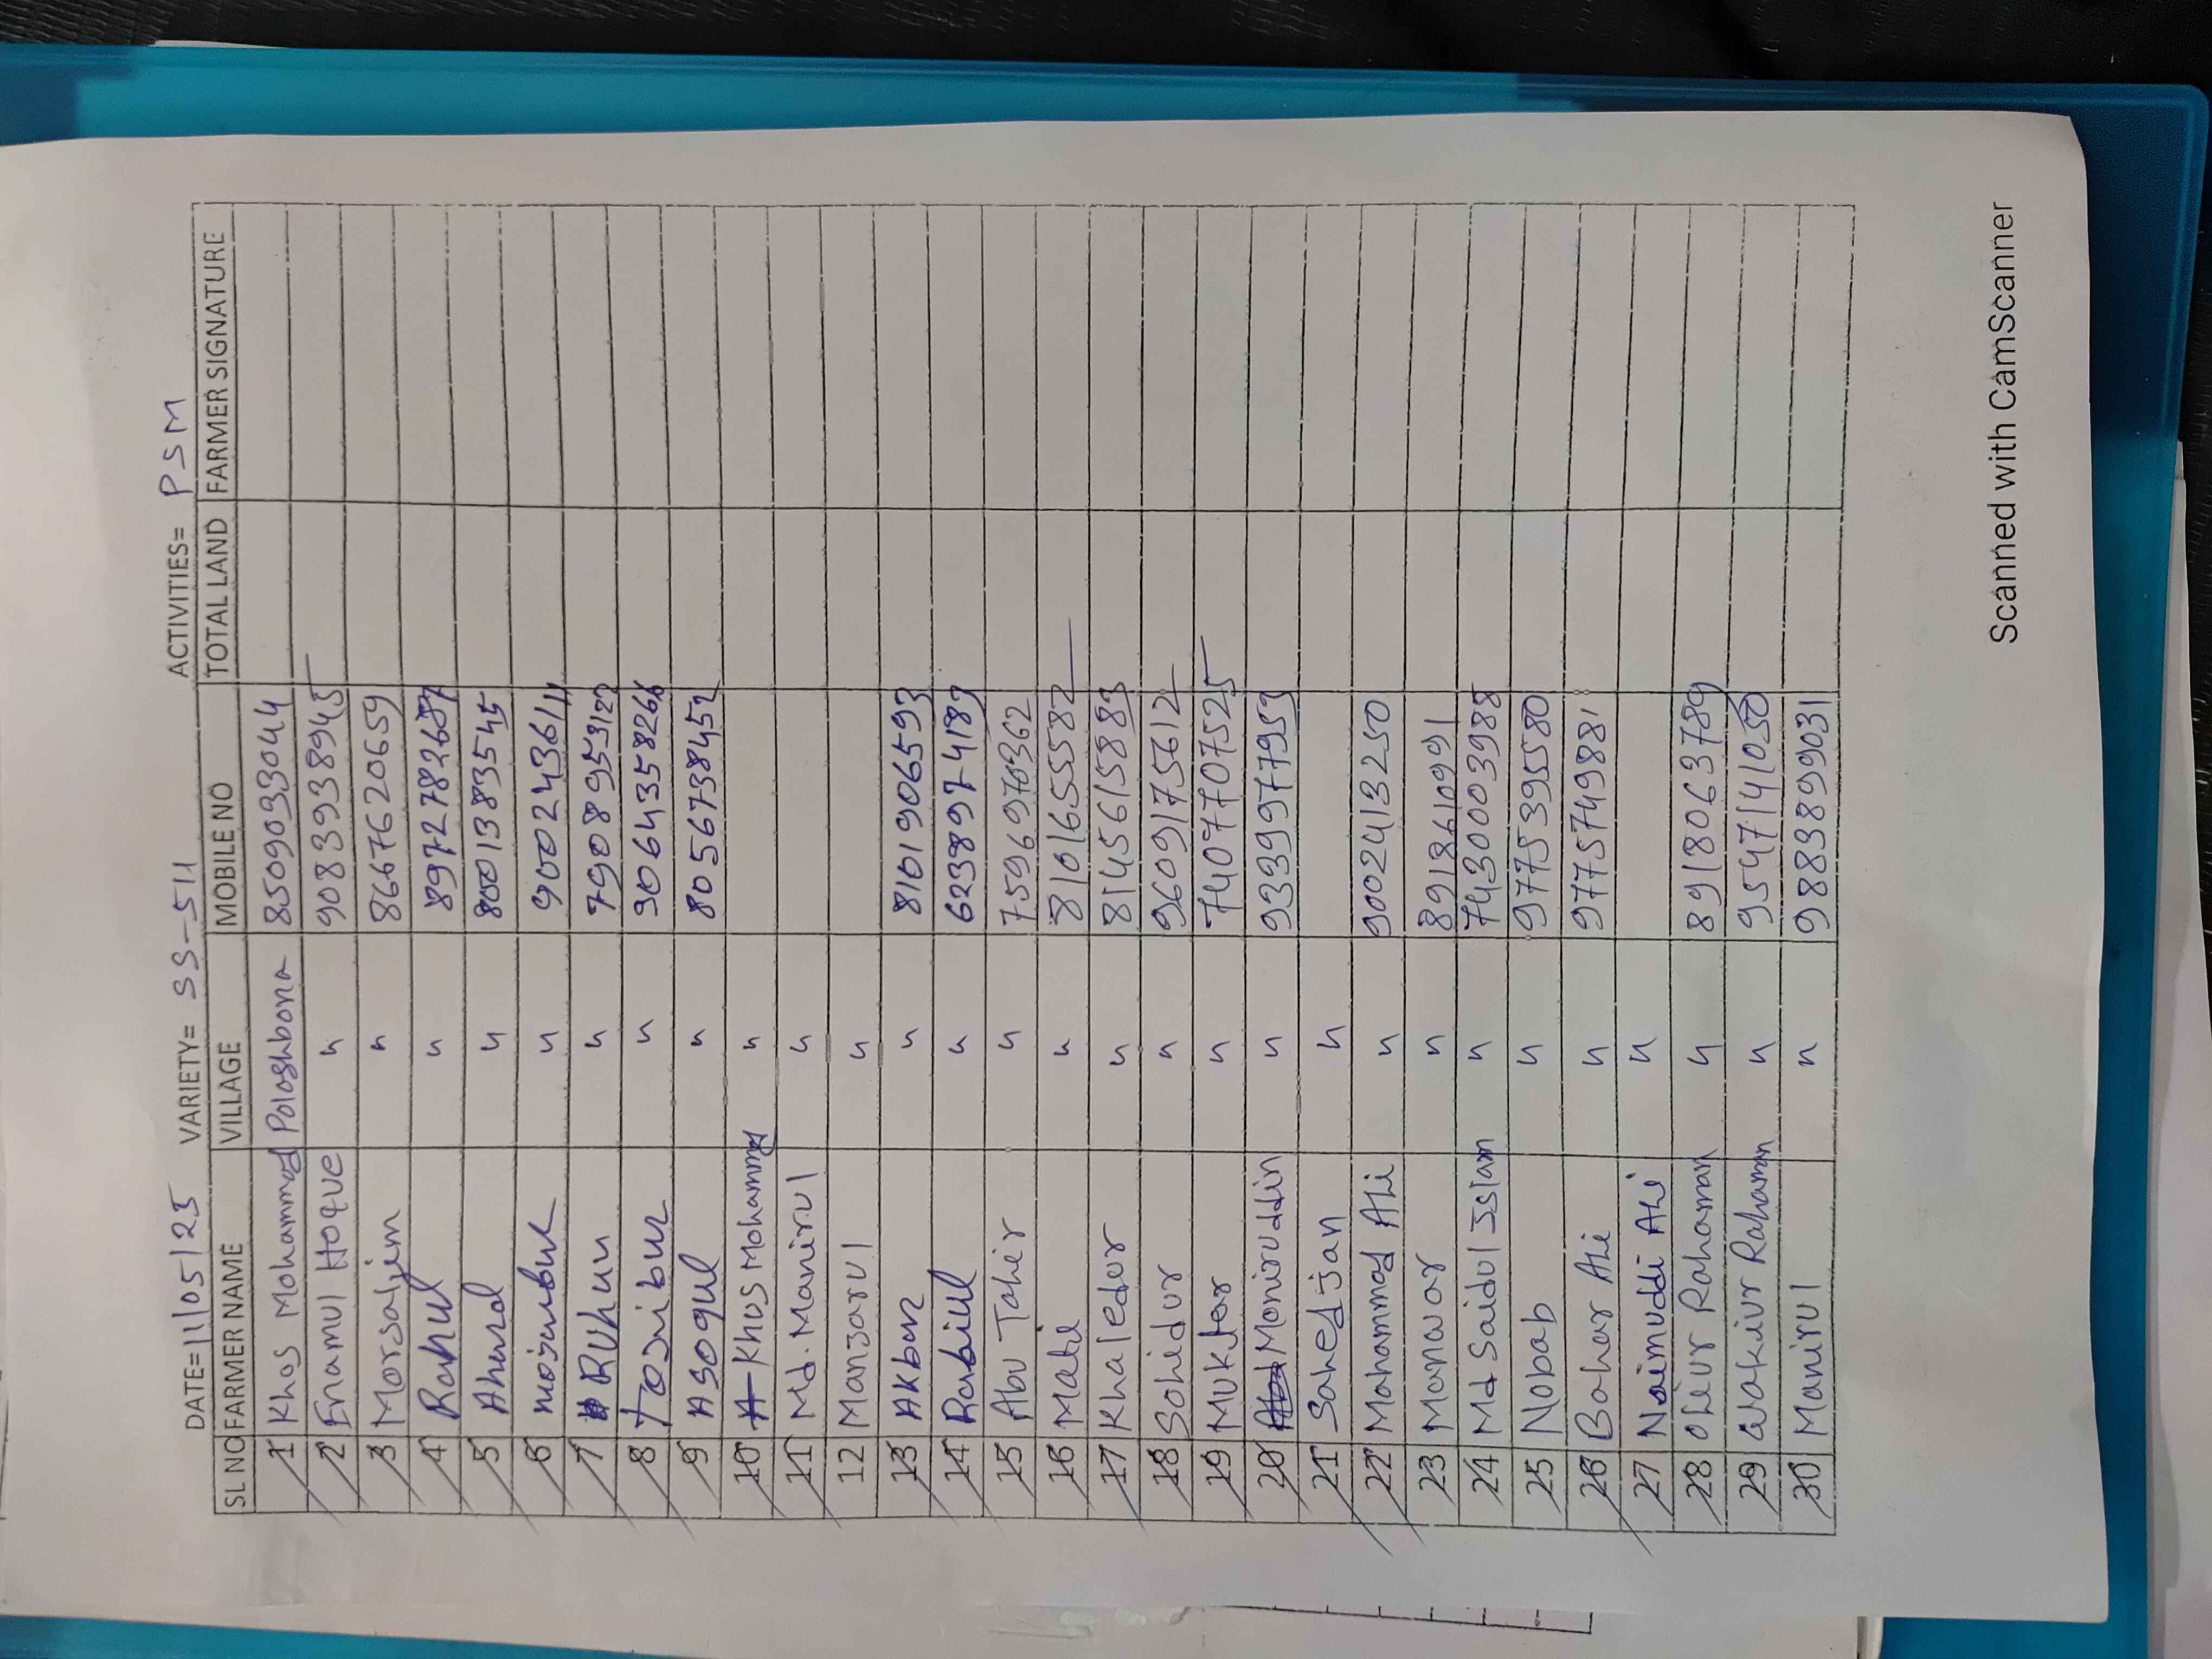 DATE=11/05/25 VARIETY= SS-511 ACTIVITIES= PSM
SL NO FARMER NAME VILLAGE MOBILE NO TOTAL LAND FARMER SIGNATURE
1 Khos Mohammad Poloshbona 8509033044
2 Enamul Hoque " 9083938945
3 Morsalim " 8667620659
4 Rahul " 8972782687
5 Ahural " 8001383545
6 mojinbur " 9002436611
7 RUhun " 7908953122
8 Tojnibur " 9064358266
9 ASOqul " 8056738452
10 Khus Mohammad "
11 Md. Manirul "
12 Manjarul "
13 AKbar " 8101906593
14 Rabiul " 6238974189
15 Abu Taher " 7596970362
16 Mati " 8101655582
17 Khaledur " 8145615883
18 Sohidur " 9609175612
19 Muktar " 7407707525
20 Moniruddin " 9339977953
21 Sahedjan "
22 Mohammad Ali " 9002413250
23 Manwar " 8918610991
24 Md Saidul Islam " 7430003988
25 Nobab " 9775395580
26 Bahar Ali " 9775749881
27 Naimuddi Ali "
28 Oliur Rahaman " 8918063789
29 Rahaman " 9547141050
30 Manirul " 9883899031
Scanned with CamScanner